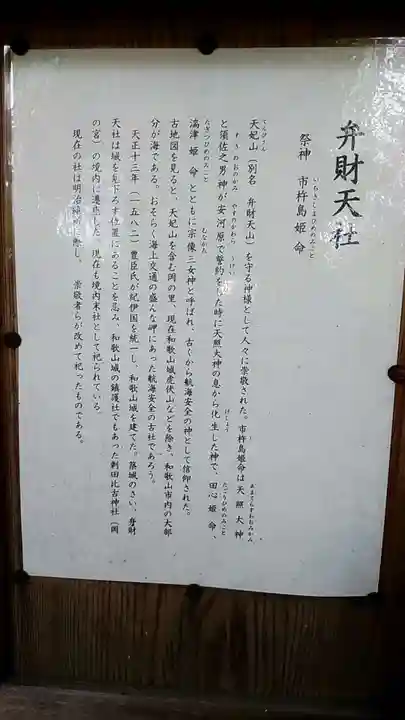 弁財天社
祭神　市杵島姫命
いちきしまひめのみこと
天妃山（別名　弁財天山）を守る神様として人々に崇敬された。市杵島姫命は天照大神
と須佐之男神が安河原で誓約をした時に天照大神の息から化生した神で、田心姫命、
湍津姫命とともに宗像三女神と呼ばれ、古くから航海安全の神として信仰された。
古地図を見ると、天妃山を含む岡の里、現在和歌山城虎伏山などを除き、和歌山市内の大部
分が海である。おそらく海上交通の盛んな岬にあった航海安全の古社であろう。
天正十三年（一五八二）豊臣氏が紀伊国を統一し、和歌山城を建てた。築城のさい、弁財
天社は城を見下ろす位置にあることを忌み、和歌山城の鎮護社でもあった刺田比古神社（岡
の宮）の境内に遷座した。現在も境内末社として祀られている。
現在の社は明治維新に際し、崇敬者らが改めて祀ったものである。